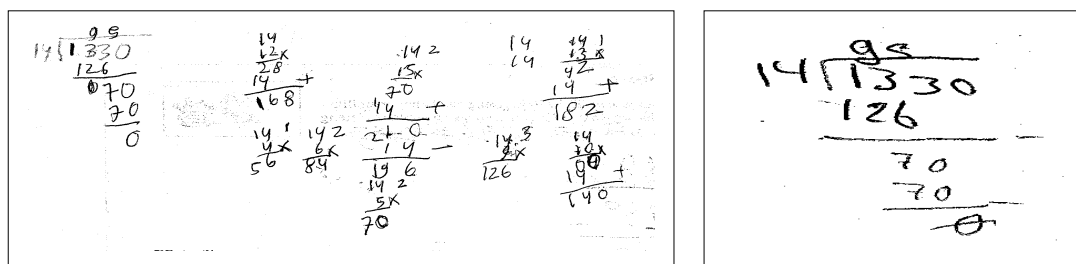 95
14 1330
126
070
70
0
14
12x
28
14 +
168
14 1
4x
56
14 2
6x
84
14 2
15x
70
14 +
210
14 -
19 6
14 2
5x
70
14
14
14 3
9x
126
14 1
13x
42
14 +
182
14
10x
00
14 +
140
95
14 1330
126
70
70
0